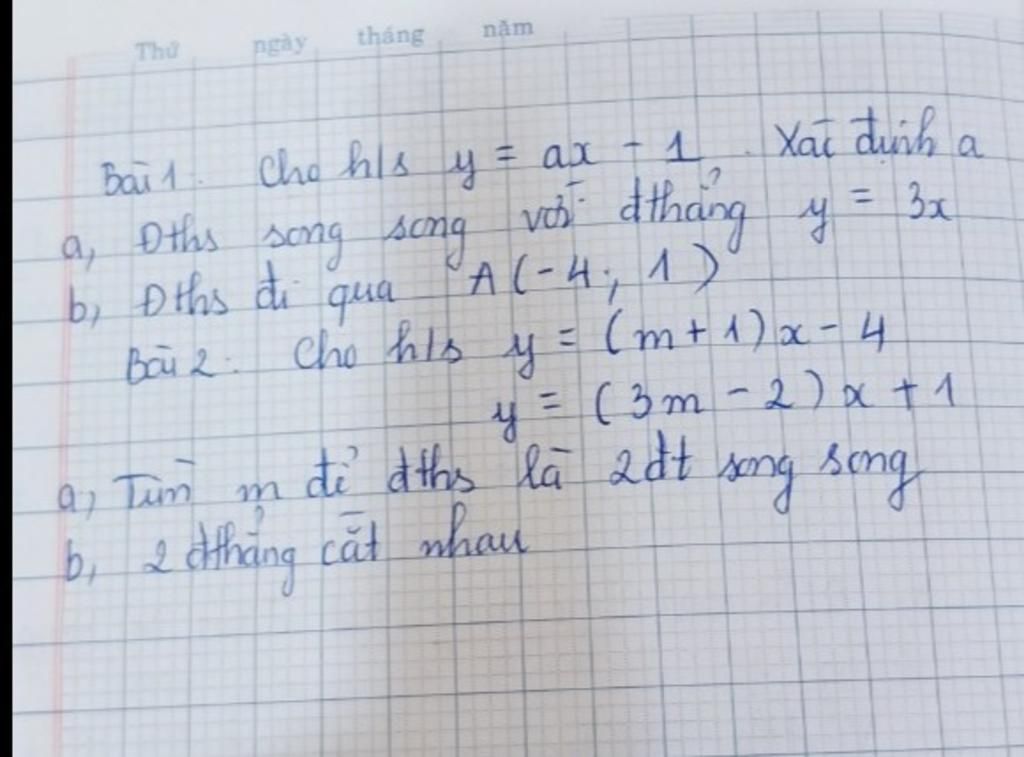 Thứ ngày tháng năm
Bài 1. Cho h/s y = ax - 1. Xác định a
a, Đths song song với đthẳng y = 3x
b, Đths đi qua A(-4; 1)
Bài 2: Cho h/s y = (m+1)x - 4
y = (3m - 2)x + 1
a, Tìm m để đths là 2đt song song
b, 2 đthẳng cắt nhau